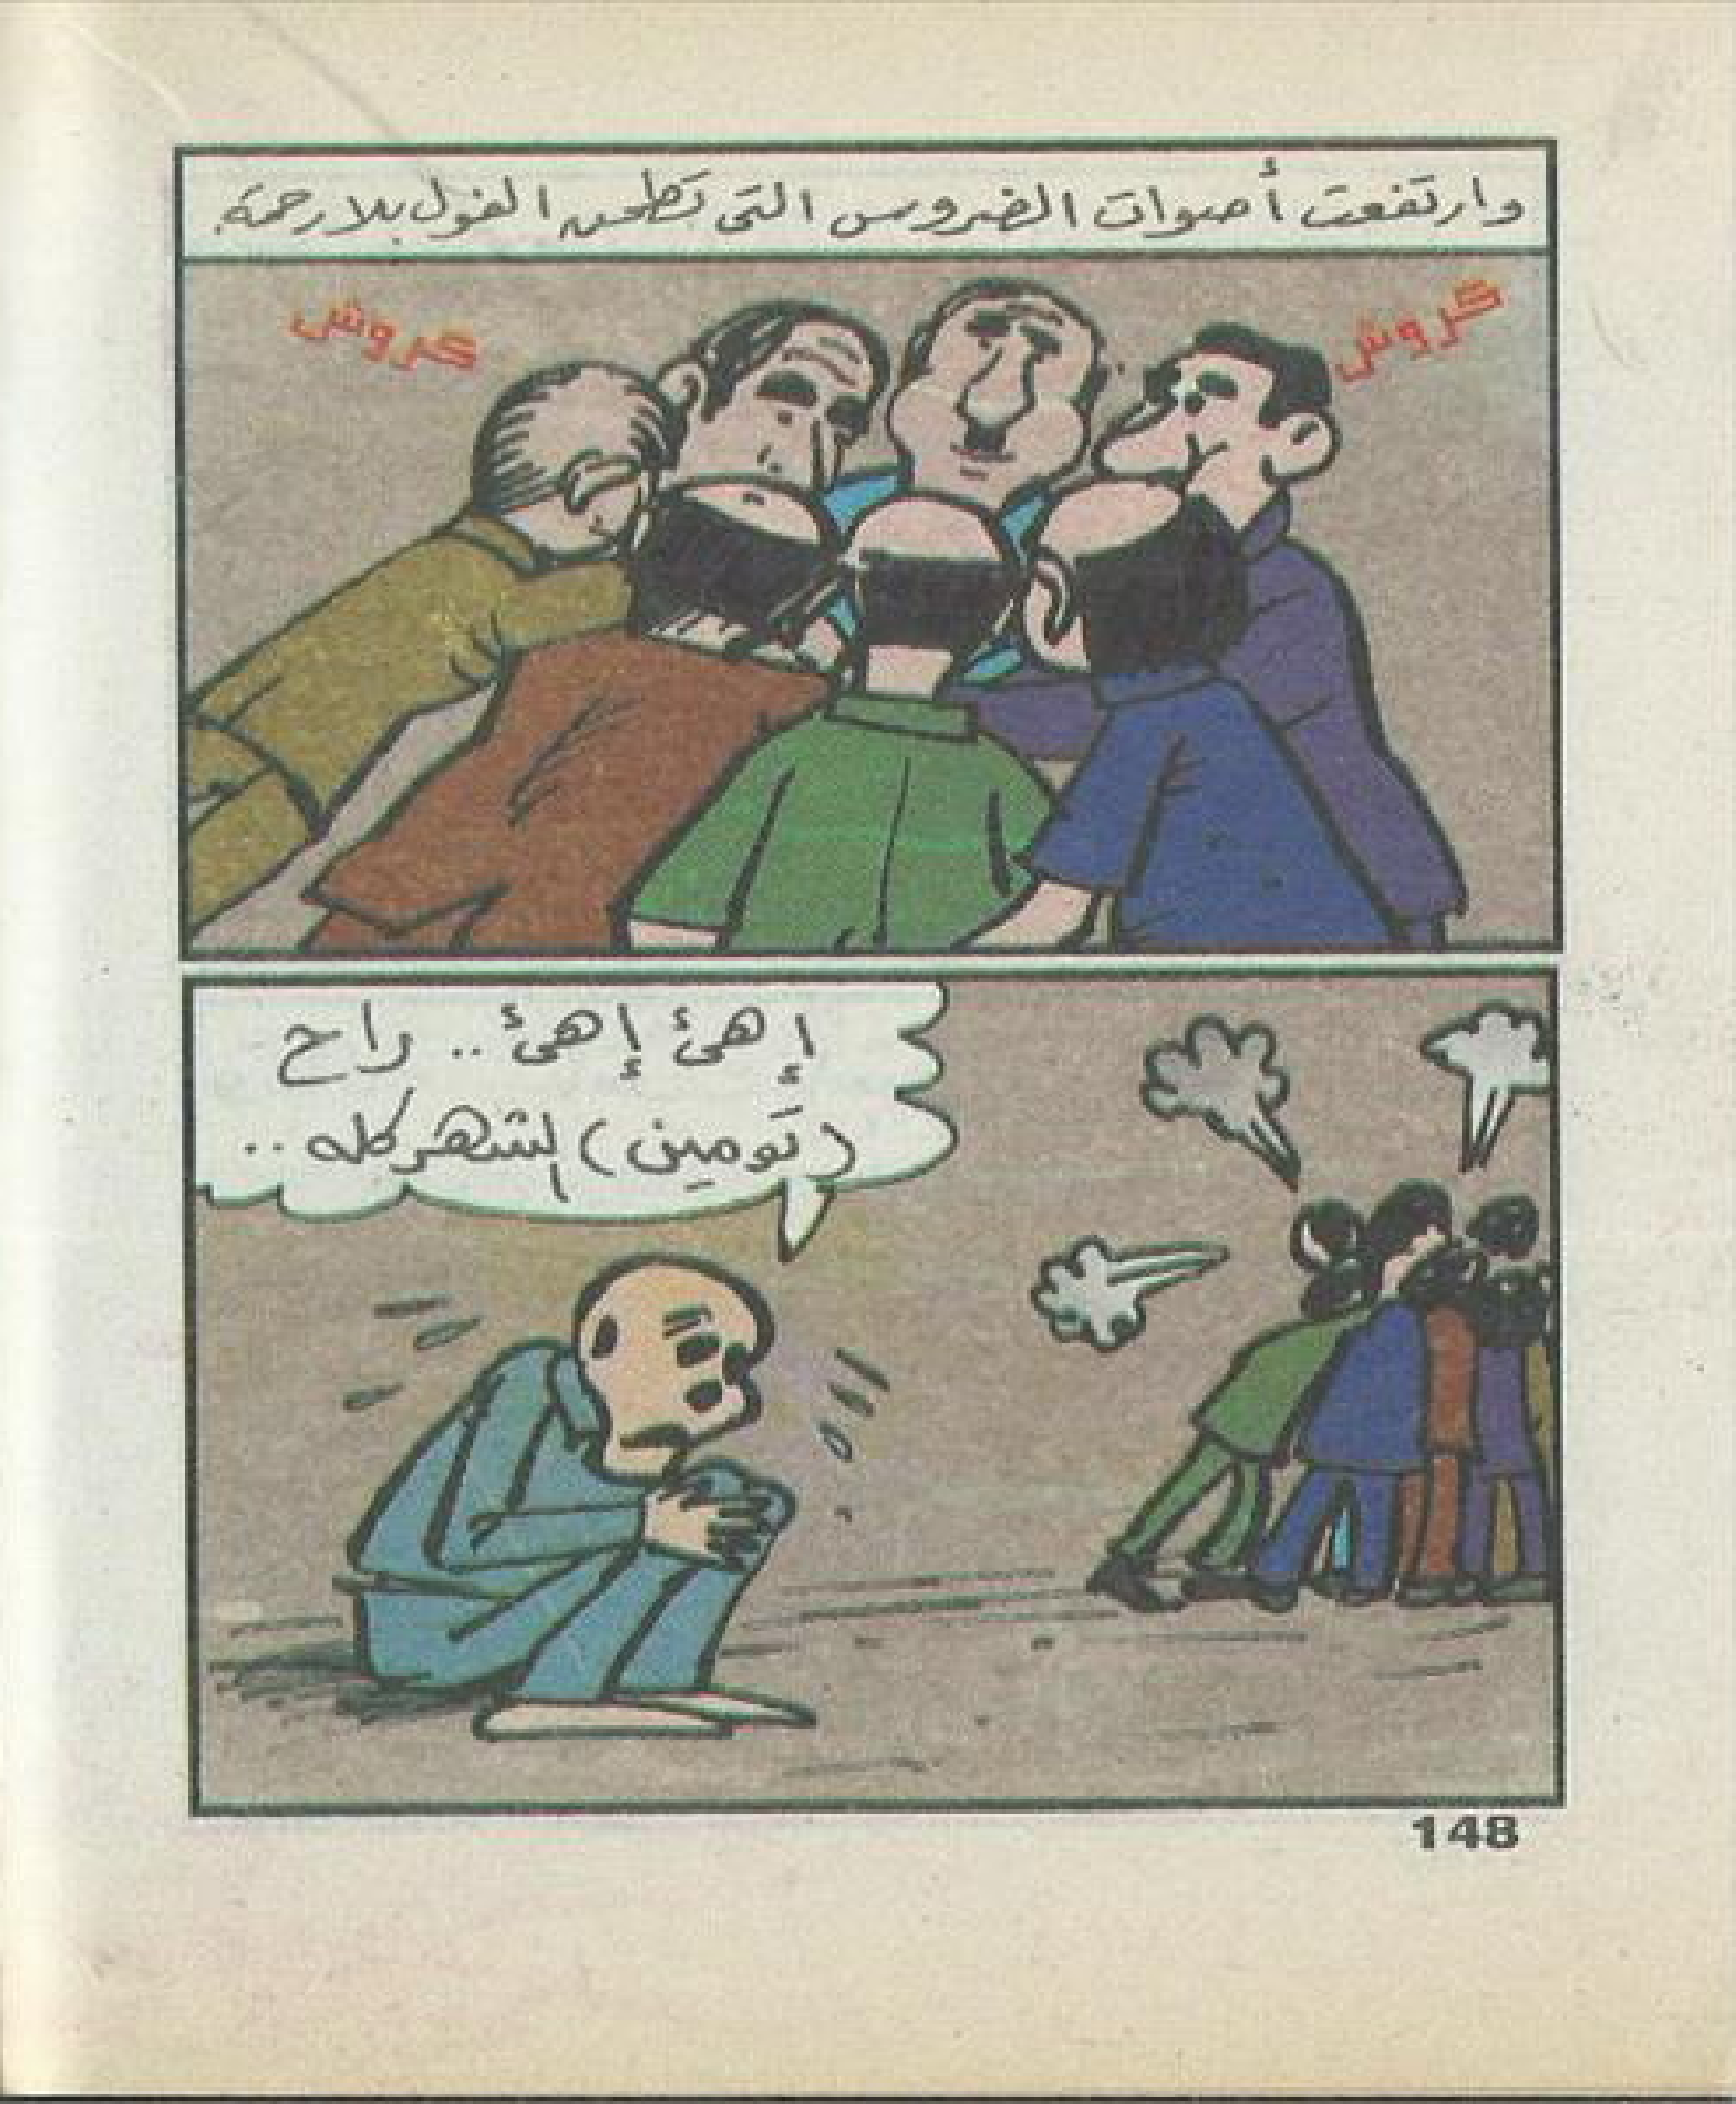 وارتفعت أصوات الضروس التى تطحن الفول بلا رحمة.
كروش
كروش
إهئ إهئ.. راح
(تموين) الشهر كله..
148